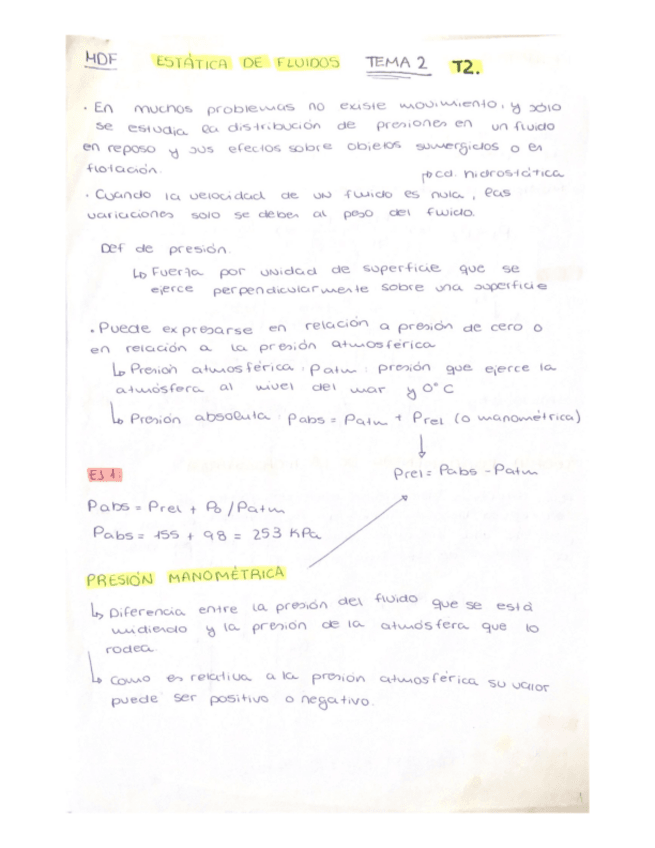 MDF ESTÁTICA DE FLUIDOS TEMA 2 T2.
· En muchos problemas no existe movimiento, y sólo
se estudia la distribución de presiones en un fluido
en reposo y sus efectos sobre objetos sumergidos o en
flotación.
pcd. hidrostática
· Cuando la velocidad de un fluido es nula, las
variaciones solo se deben al peso del fluido.
Def de presión.
↳ Fuerza por unidad de superficie que se
ejerce perpendicularmente sobre una superficie
· Puede expresarse en relación a presión de cero o
en relación a la presión atmosférica
↳ Presión atmosférica: Patm: presión que ejerce la
atmósfera al nivel del mar y 0°C
↳ Presión absoluta: Pabs = Patm + Prel (o manométrica)
↓
Prel = Pabs - Patm
EJ 1:
Pabs = Prel + P0 / Patm
Pabs = 155 + 98 = 253 KPa
PRESIÓN MANOMÉTRICA
↳ Diferencia entre la presión del fluido que se está
midiendo y la presión de la atmósfera que lo
rodea.
↳ Como es relativa a la presión atmosférica su valor
puede ser positivo o negativo.